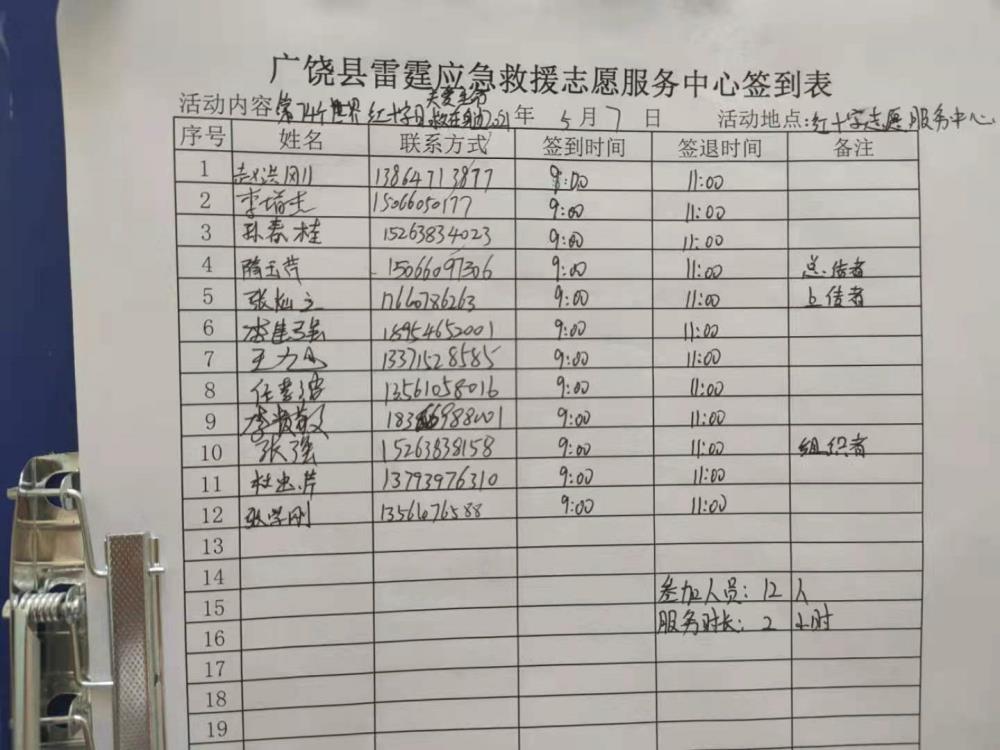 广饶县雷霆应急救援志愿服务中心签到表
关爱生命
活动内容 第74个世界红十字日 救在身边 2021年 5月7日 活动地点:红十字志愿服务中心
序号 姓名 联系方式 签到时间 签退时间 备注
1 赵洪刚 13864713877 9:00 11:00
2 李 15066050177 9:00 11:00
3 孙春桂 15263834023 9:00 11:00
4 隋玉芹 15066097306 9:00 11:00
5 张灿立 17660786263 9:00 11:00
6 李建强 18954652001 9:00 11:00
7 王 13371528585 9:00 11:00
8 任 13561058016 9:00 11:00
9 李 988001 9:00 11:00
10 张强 15263838158 9:00 11:00 组织者
11 杜忠芹 13793976310 9:00 11:00
12 张学刚 9:00 11:00
13
14 参加人员:12人
15 服务时长:2小时
16
17
18
19